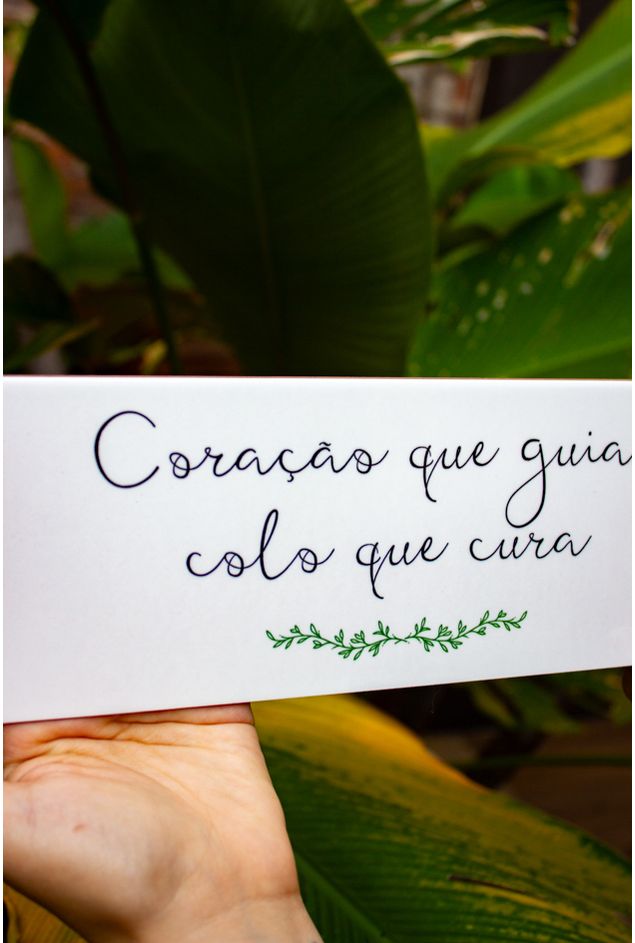 Coração que guia
colo que cura